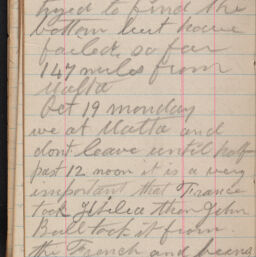 tryed to find the
bottom but have
failed so far
147 miles from
Malta
Oct 19 monday
we at Malta and
dont leave until half
past 12 noon it is a very
important that France
took then John
Bull took it from
the French and being